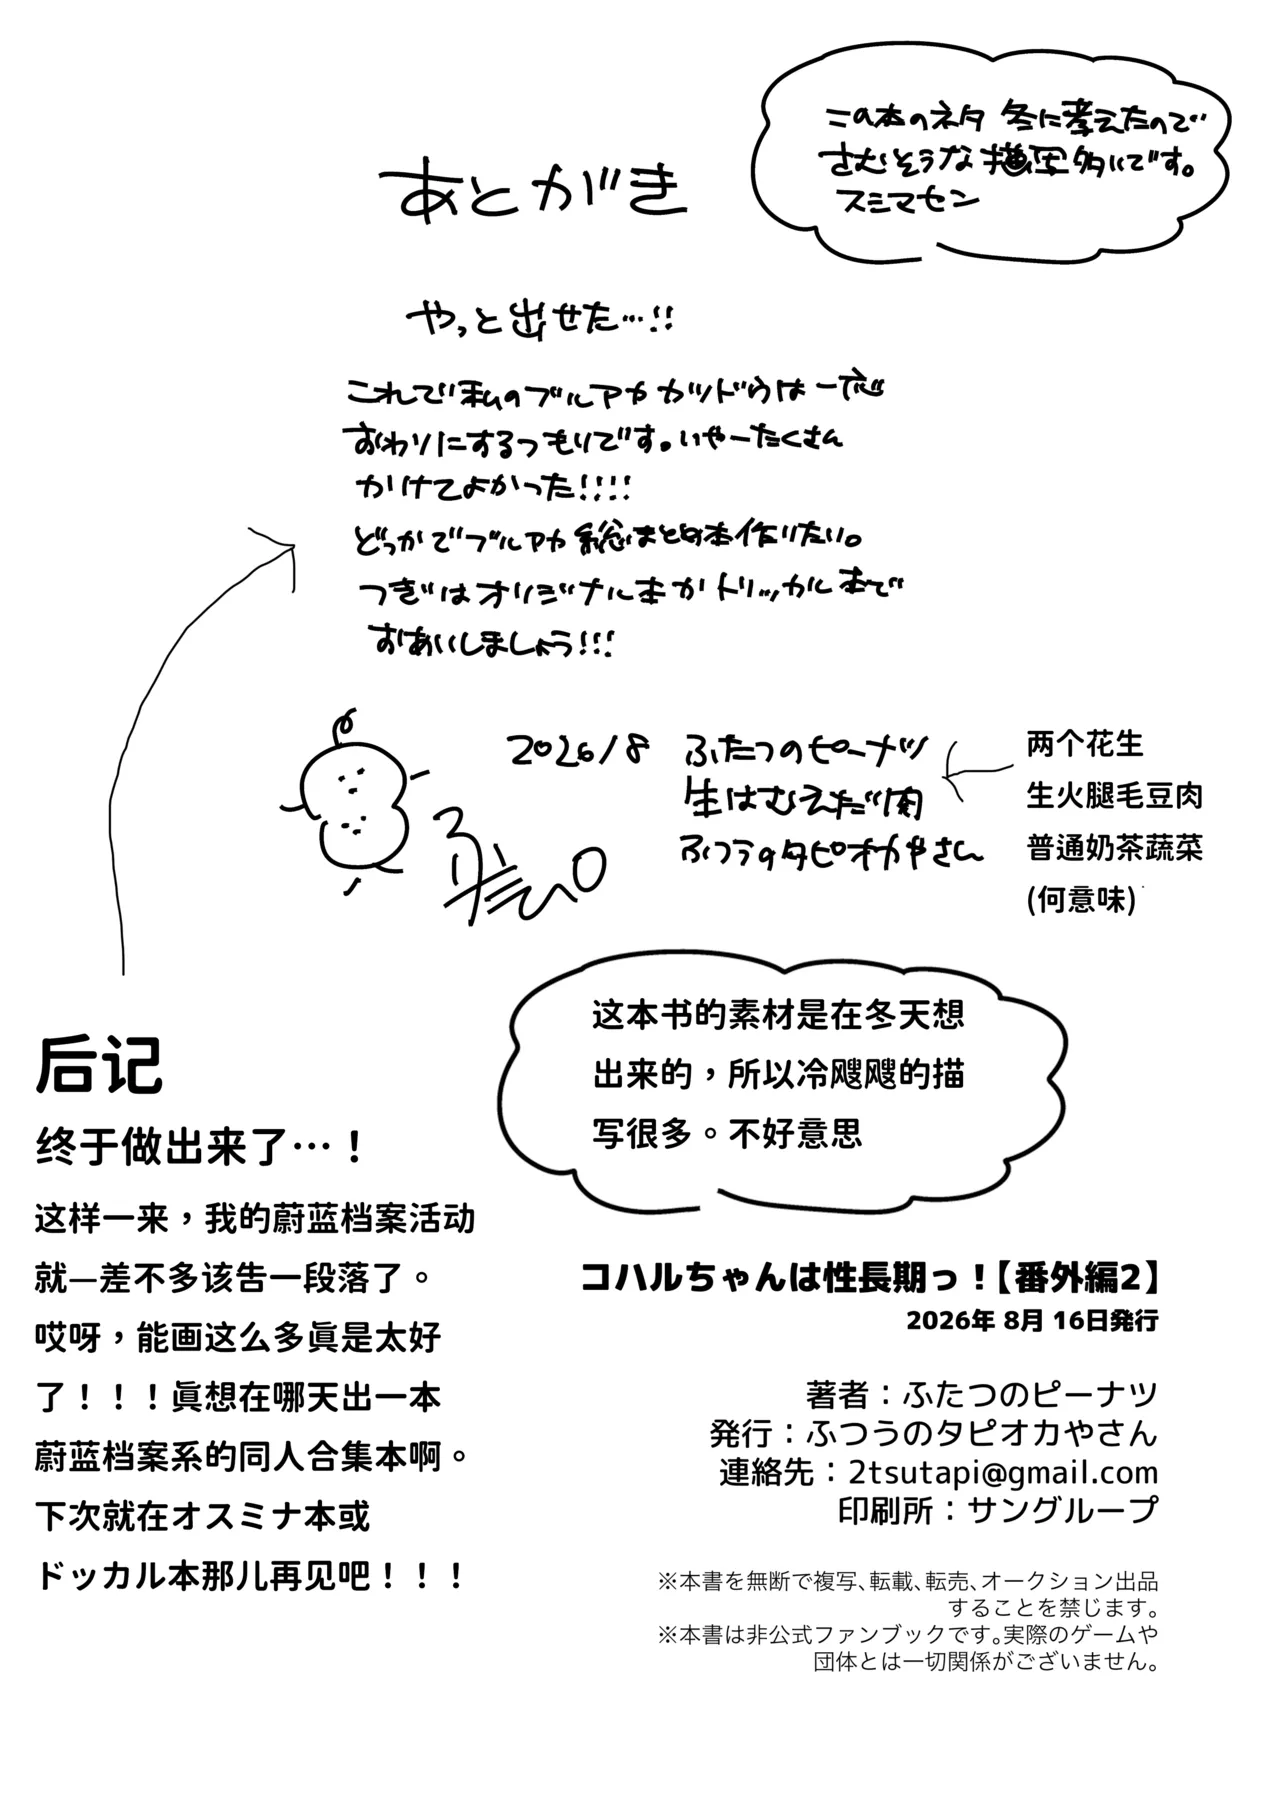 この本のネタ 冬に考えたので
さむそうな描写多いです。
スミマセン
あとがき
やっと出せた…!!
これで私のブルアカカツドウは一応
おわりにするつもりです。いやーたくさん
かけてよかった!!!!
どっかでブルアカ総まとめ本作りたい。
つぎはオリジナル本かトリッカル本で
おあいしましょう!!!
2026/8 ふたつのピーナツ
生はむえだ肉
ふつうのタピオカやさん
两个花生
生火腿毛豆肉
普通奶茶蔬菜
(何意味)
这本书的素材是在冬天想
出来的，所以冷飕飕的描
写很多。不好意思
后记
终于做出来了…！
这样一来，我的蔚蓝档案活动
就—差不多该告一段落了。
哎呀，能画这么多眞是太好
了！！！眞想在哪天出一本
蔚蓝档案系的同人合集本啊。
下次就在オスミナ本或
ドッカル本那儿再见吧！！！
コハルちゃんは性長期っ！【番外編2】
2026年 8月 16日発行
著者：ふたつのピーナツ
発行：ふつうのタピオカやさん
連絡先：2tsutapi@gmail.com
印刷所：サングループ
※本書を無断で複写､転載､転売､オークション出品
することを禁じます。
※本書は非公式ファンブックです｡実際のゲームや
団体とは一切関係がございません。